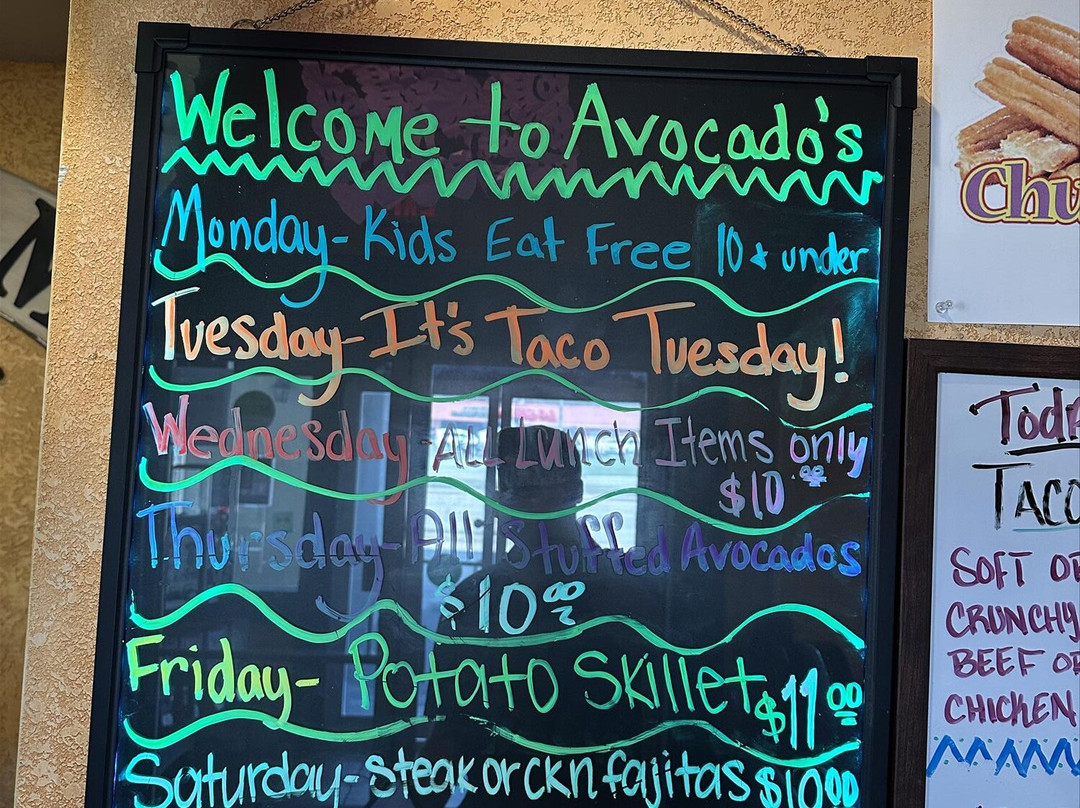 Welcome to Avocado's
Monday- Kids Eat Free 10 & under
Tuesday- It's Taco Tuesday!
Wednesday- All Lunch Items only
$10.00
Thursday- All Stuffed Avocados
$10.00
Friday- Potato Skillet $11.00
Saturday- steak or ckn fajitas $10.00
Chu
Toda
TACO
SOFT OR
CRUNCHY
BEEF OR
CHICKEN